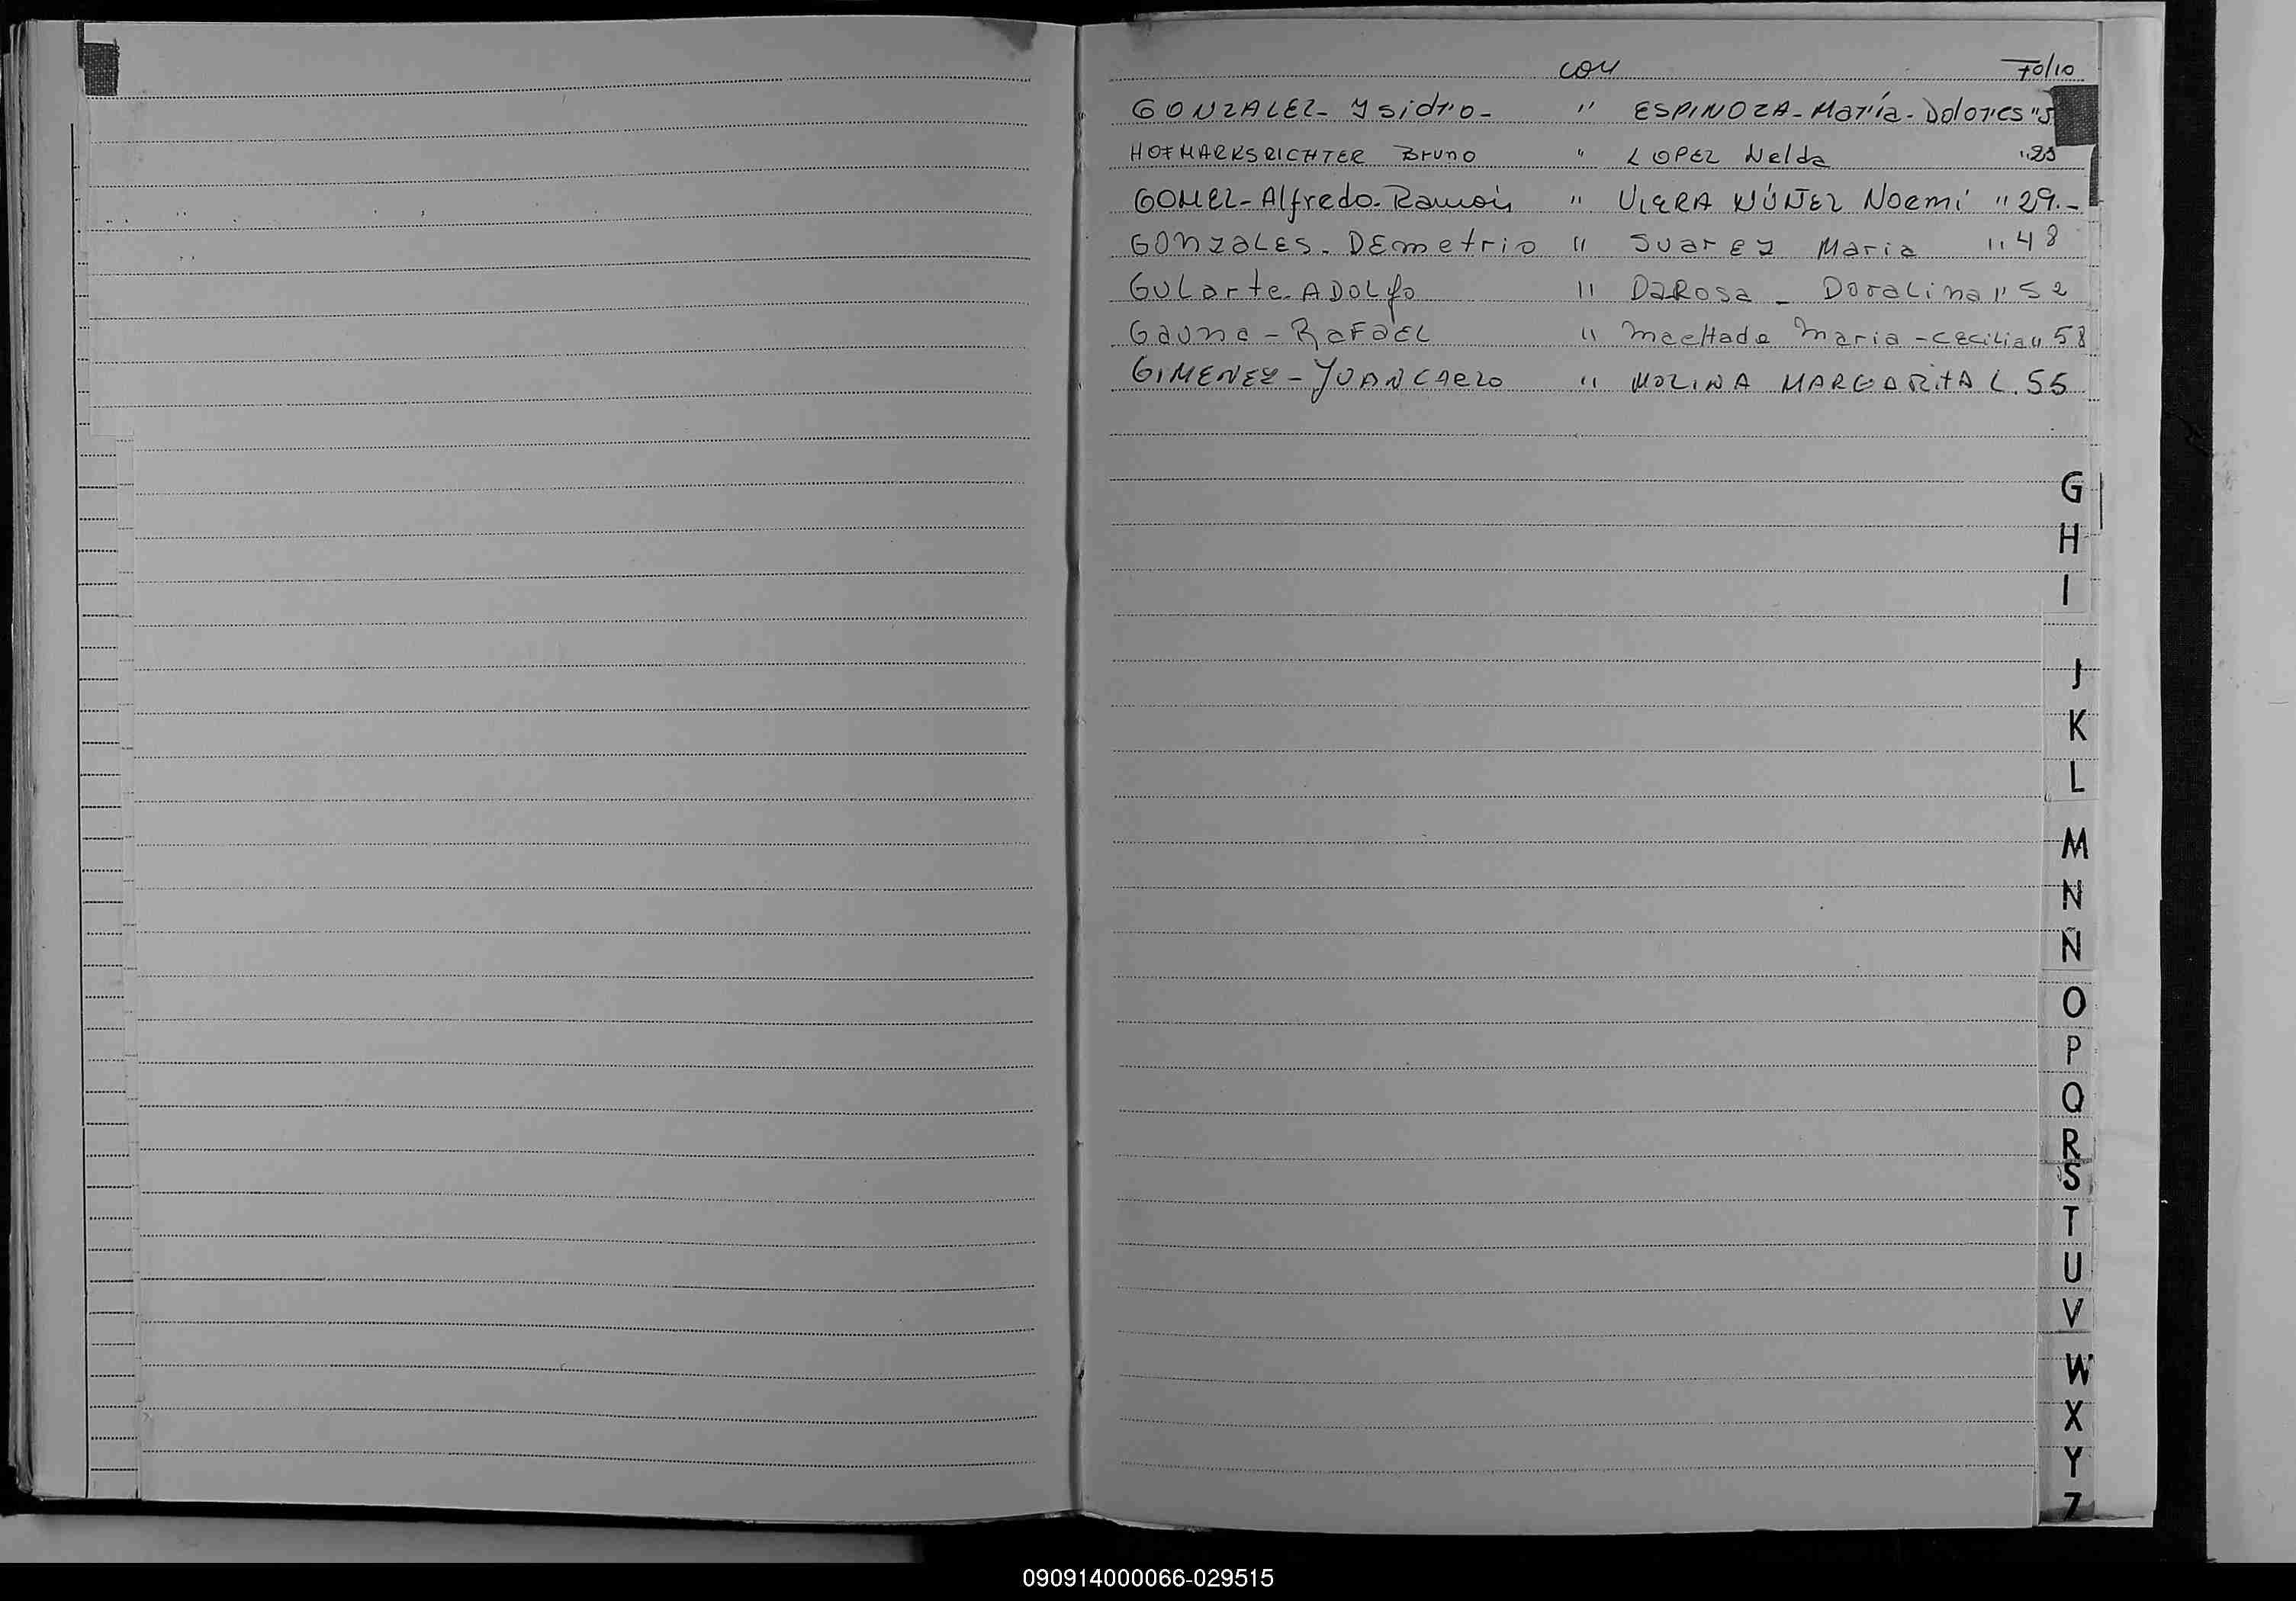 con Folio
GONZALEZ- Ysidro- " ESPINOZA- María- Dolores "5
HOFMARKSRICHTER Bruno " LOPEZ Nelda "25
GOMEZ- Alfredo- Ramón " VIERA NÚÑEZ Noemí "29.-
GONZALES- DEmetrio " Suarez Maria "48
GULarte- ADOLfo " DaRosa - Doralina "52
Gauna - RaFaEL " Machado Maria - Cecilia "58
GIMENEZ - JUAN CARLO " MOLINA MARGARITA L. 55
G
H
I
J
K
L
M
N
Ñ
O
P
Q
R
S
T
U
V
W
X
Y
Z
090914000066-029515